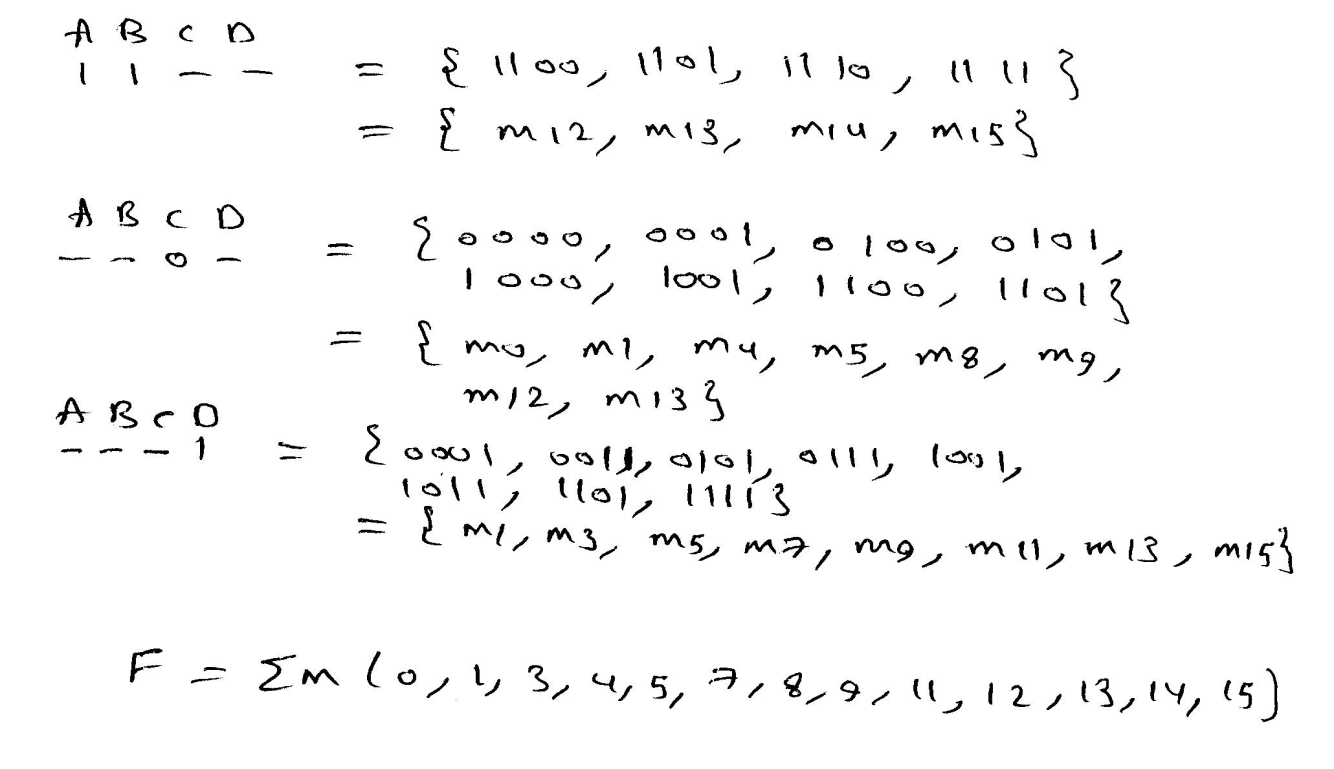 A B C D
1 1 - - = { 1100, 1101, 1110, 1111}
= { m12, m13, m14, m15}
A B C D
- - 0 - = {0000, 0001, 0100, 0101,
1000, 1001, 1100, 1101}
= { m0, m1, m4, m5, m8, m9,
m12, m13}
A B C D
- - - 1 = {0001, 0011, 0101, 0111, 1001,
1011, 1101, 1111}
= { m1, m3, m5, m7, m9, m11, m13, m15}
F = Σm (0, 1, 3, 4, 5, 7, 8, 9, 11, 12, 13, 14, 15)